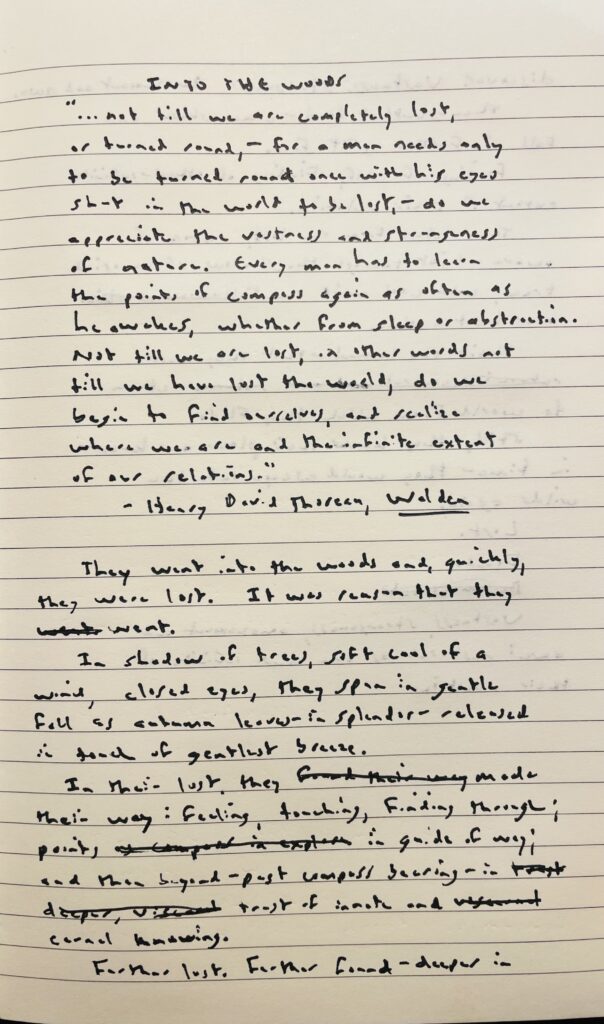 INTO THE WOODS
"... not till we are completely lost,
or turned round, – for a man needs only
to be turned round once with his eyes
shut in the world to be lost, – do we
appreciate the vastness and strangeness
of nature. Every man has to learn
the points of compass again as often as
he awakes, whether from sleep or abstraction.
Not till we are lost, in other words not
till we have lost the world, do we
begin to find ourselves, and realize
where we are and the infinite extent
of our relations."
- Henry David Thoreau, Walden
They went into the woods and, quickly,
they were lost. It was reason that they
went went.
In shadow of trees, soft cool of a
wind, closed eyes, they spun in gentle
fall as autumn leaves – in splendor – released
in touch of gentlest breeze.
In their lost, they found their way made
their way: feeling, touching, finding through;
points as compass in explore in guide of way;
and then beyond – past compass bearing – in trust
deeper, visceral trust of innate and visceral
carnal knowing.
Farther lost. Farther found – deeper in